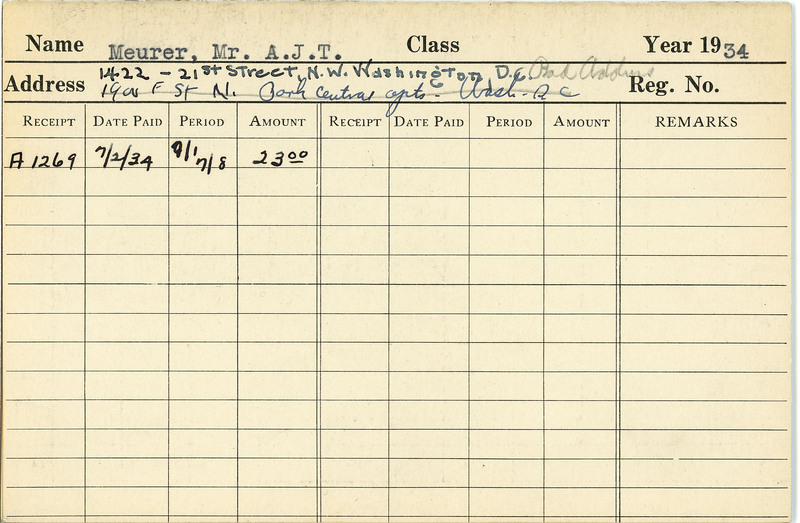 Name Meurer, Mr. A.J.T. Class Year 1934
1422 - 21st Street, N.W. Washington, D.C. Bad Address
Address 1901 F St N. Park Central apts. Wash. D C Reg. No.
RECEIPT DATE PAID PERIOD AMOUNT RECEIPT DATE PAID PERIOD AMOUNT REMARKS
A1269 7/2/34 7/1 7/8 23.00